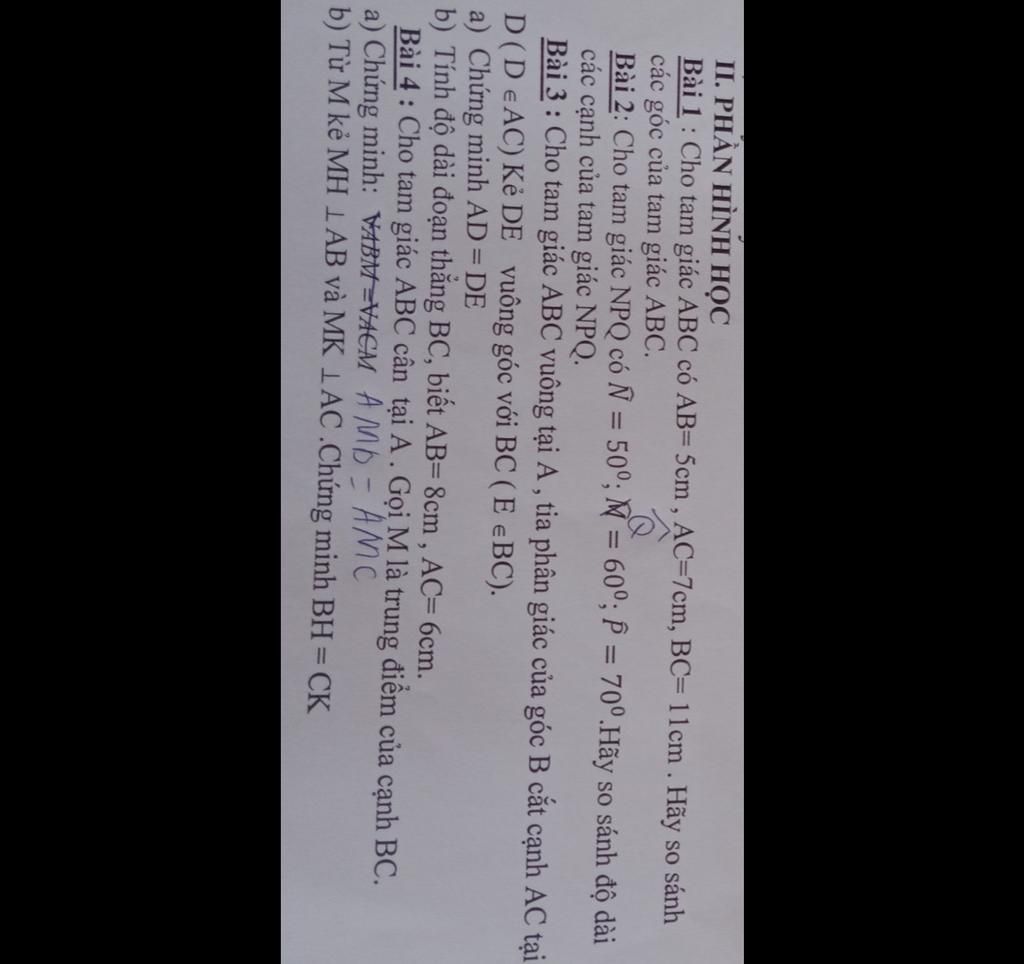 II. PHẦN HÌNH HỌC
Bài 1 : Cho tam giác ABC có AB= 5cm , AC=7cm, BC= 11cm . Hãy so sánh
các góc của tam giác ABC.
Bài 2: Cho tam giác NPQ có N̂ = 50⁰; M̂ Q̂ = 60⁰; P̂ = 70⁰.Hãy so sánh độ dài
các cạnh của tam giác NPQ.
Bài 3 : Cho tam giác ABC vuông tại A , tia phân giác của góc B cắt cạnh AC tại
D ( D ∈ AC) Kẻ DE vuông góc với BC ( E ∈ BC).
a) Chứng minh AD = DE
b) Tính độ dài đoạn thẳng BC, biết AB= 8cm , AC= 6cm.
Bài 4 : Cho tam giác ABC cân tại A . Gọi M là trung điểm của cạnh BC.
a) Chứng minh: VABM =VACM AMb = AMC
b) Từ M kẻ MH ⊥ AB và MK ⊥ AC .Chứng minh BH = CK